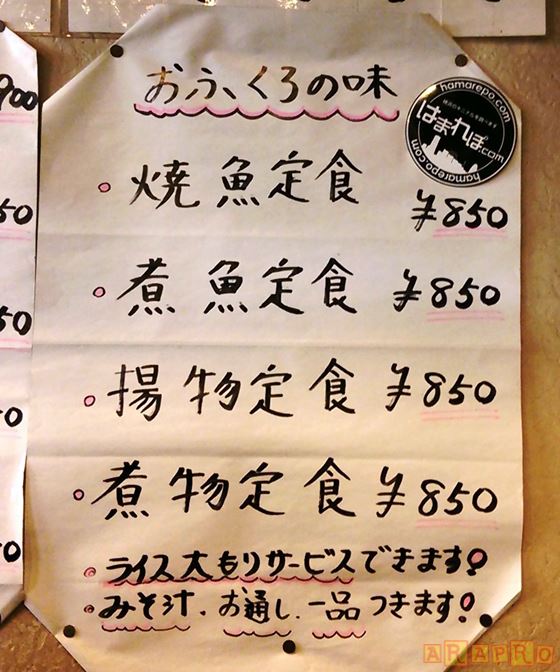 おふくろの味
hamarepo.com
はまれぽ.com
hamarepo.com
・焼魚定食 ¥850
・煮魚定食 ¥850
・揚物定食 ¥850
・煮物定食 ¥850
・ライス大もりサービスできます!
・みそ汁、お通し、一品つきます!
900
50
50
50
50
ARAPRO